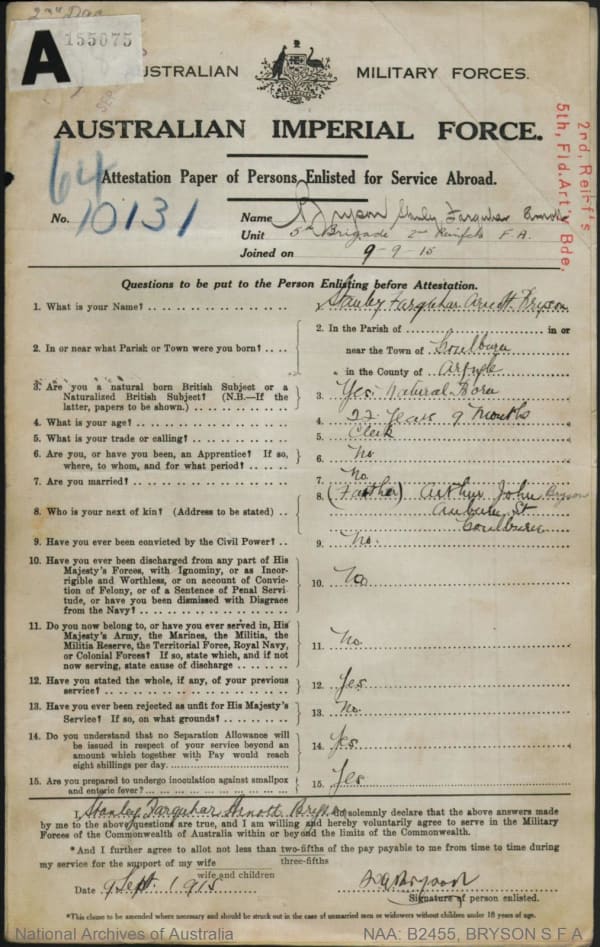 2nd
A
155075
AUSTRALIAN MILITARY FORCES.
AUSTRALIAN IMPERIAL FORCE.
2nd, Reinf's
5th, Fld.Art'y Bde,
64
Attestation Paper of Persons Enlisted for Service Abroad.
No. 10131
Name Bryson Stanley Farquhar Arnott
Unit 5th Brigade 2nd Reinfts F.A.
Joined on 9-9-15
Questions to be put to the Person Enlisting before Attestation.
1. What is your Name?
1. Stanley Farquhar Arnott Bryson
2. In or near what Parish or Town were you born?
2. In the Parish of in or
near the Town of Goulburn
in the County of Argyle
3. Are you a natural born British Subject or a
Naturalized British Subject? (N.B.—If the
latter, papers to be shown.)
3. Yes. Natural Born
4. What is your age?
4. 22 Years 9 Months
5. What is your trade or calling?
5. Clerk
6. Are you, or have you been, an Apprentice? If so,
where, to whom, and for what period?
6. No
7. Are you married?
7. No
8. Who is your next of kin? (Address to be stated)
8. (Father) Arthur John Bryson
Auburn St
Goulburn
9. Have you ever been convicted by the Civil Power?
9. No.
10. Have you ever been discharged from any part of His
Majesty's Forces, with Ignominy, or as Incor-
rigible and Worthless, or on account of Convic-
tion of Felony, or of a Sentence of Penal Servi-
tude, or have you been dismissed with Disgrace
from the Navy?
10. No
11. Do you now belong to, or have you ever served in, His
Majesty's Army, the Marines, the Militia, the
Militia Reserve, the Territorial Force, Royal Navy,
or Colonial Forces? If so, state which, and if not
now serving, state cause of discharge
11. No
12. Have you stated the whole, if any, of your previous
service?
12. Yes
13. Have you ever been rejected as unfit for His Majesty's
Service? If so, on what grounds?
13. No
14. Do you understand that no Separation Allowance will
be issued in respect of your service beyond an
amount which together with Pay would reach
eight shillings per day.
14. Yes
15. Are you prepared to undergo inoculation against smallpox
and enteric fever?
15. Yes
I, Stanley Farquhar Arnott Bryson do solemnly declare that the above answers made
by me to the above questions are true, and I am willing and hereby voluntarily agree to serve in the Military
Forces of the Commonwealth of Australia within or beyond the limits of the Commonwealth.
*And I further agree to allot not less than two-fifths of the pay payable to me from time to time during
three-fifths
my service for the support of my wife
wife and children
Date 9 Sept. 1915
Signature of person enlisted.
*This clause to be amended where necessary and should be struck out in the case of unmarried men or widowers without children under 18 years of age.
National Archives of Australia
NAA: B2455, BRYSON S F A